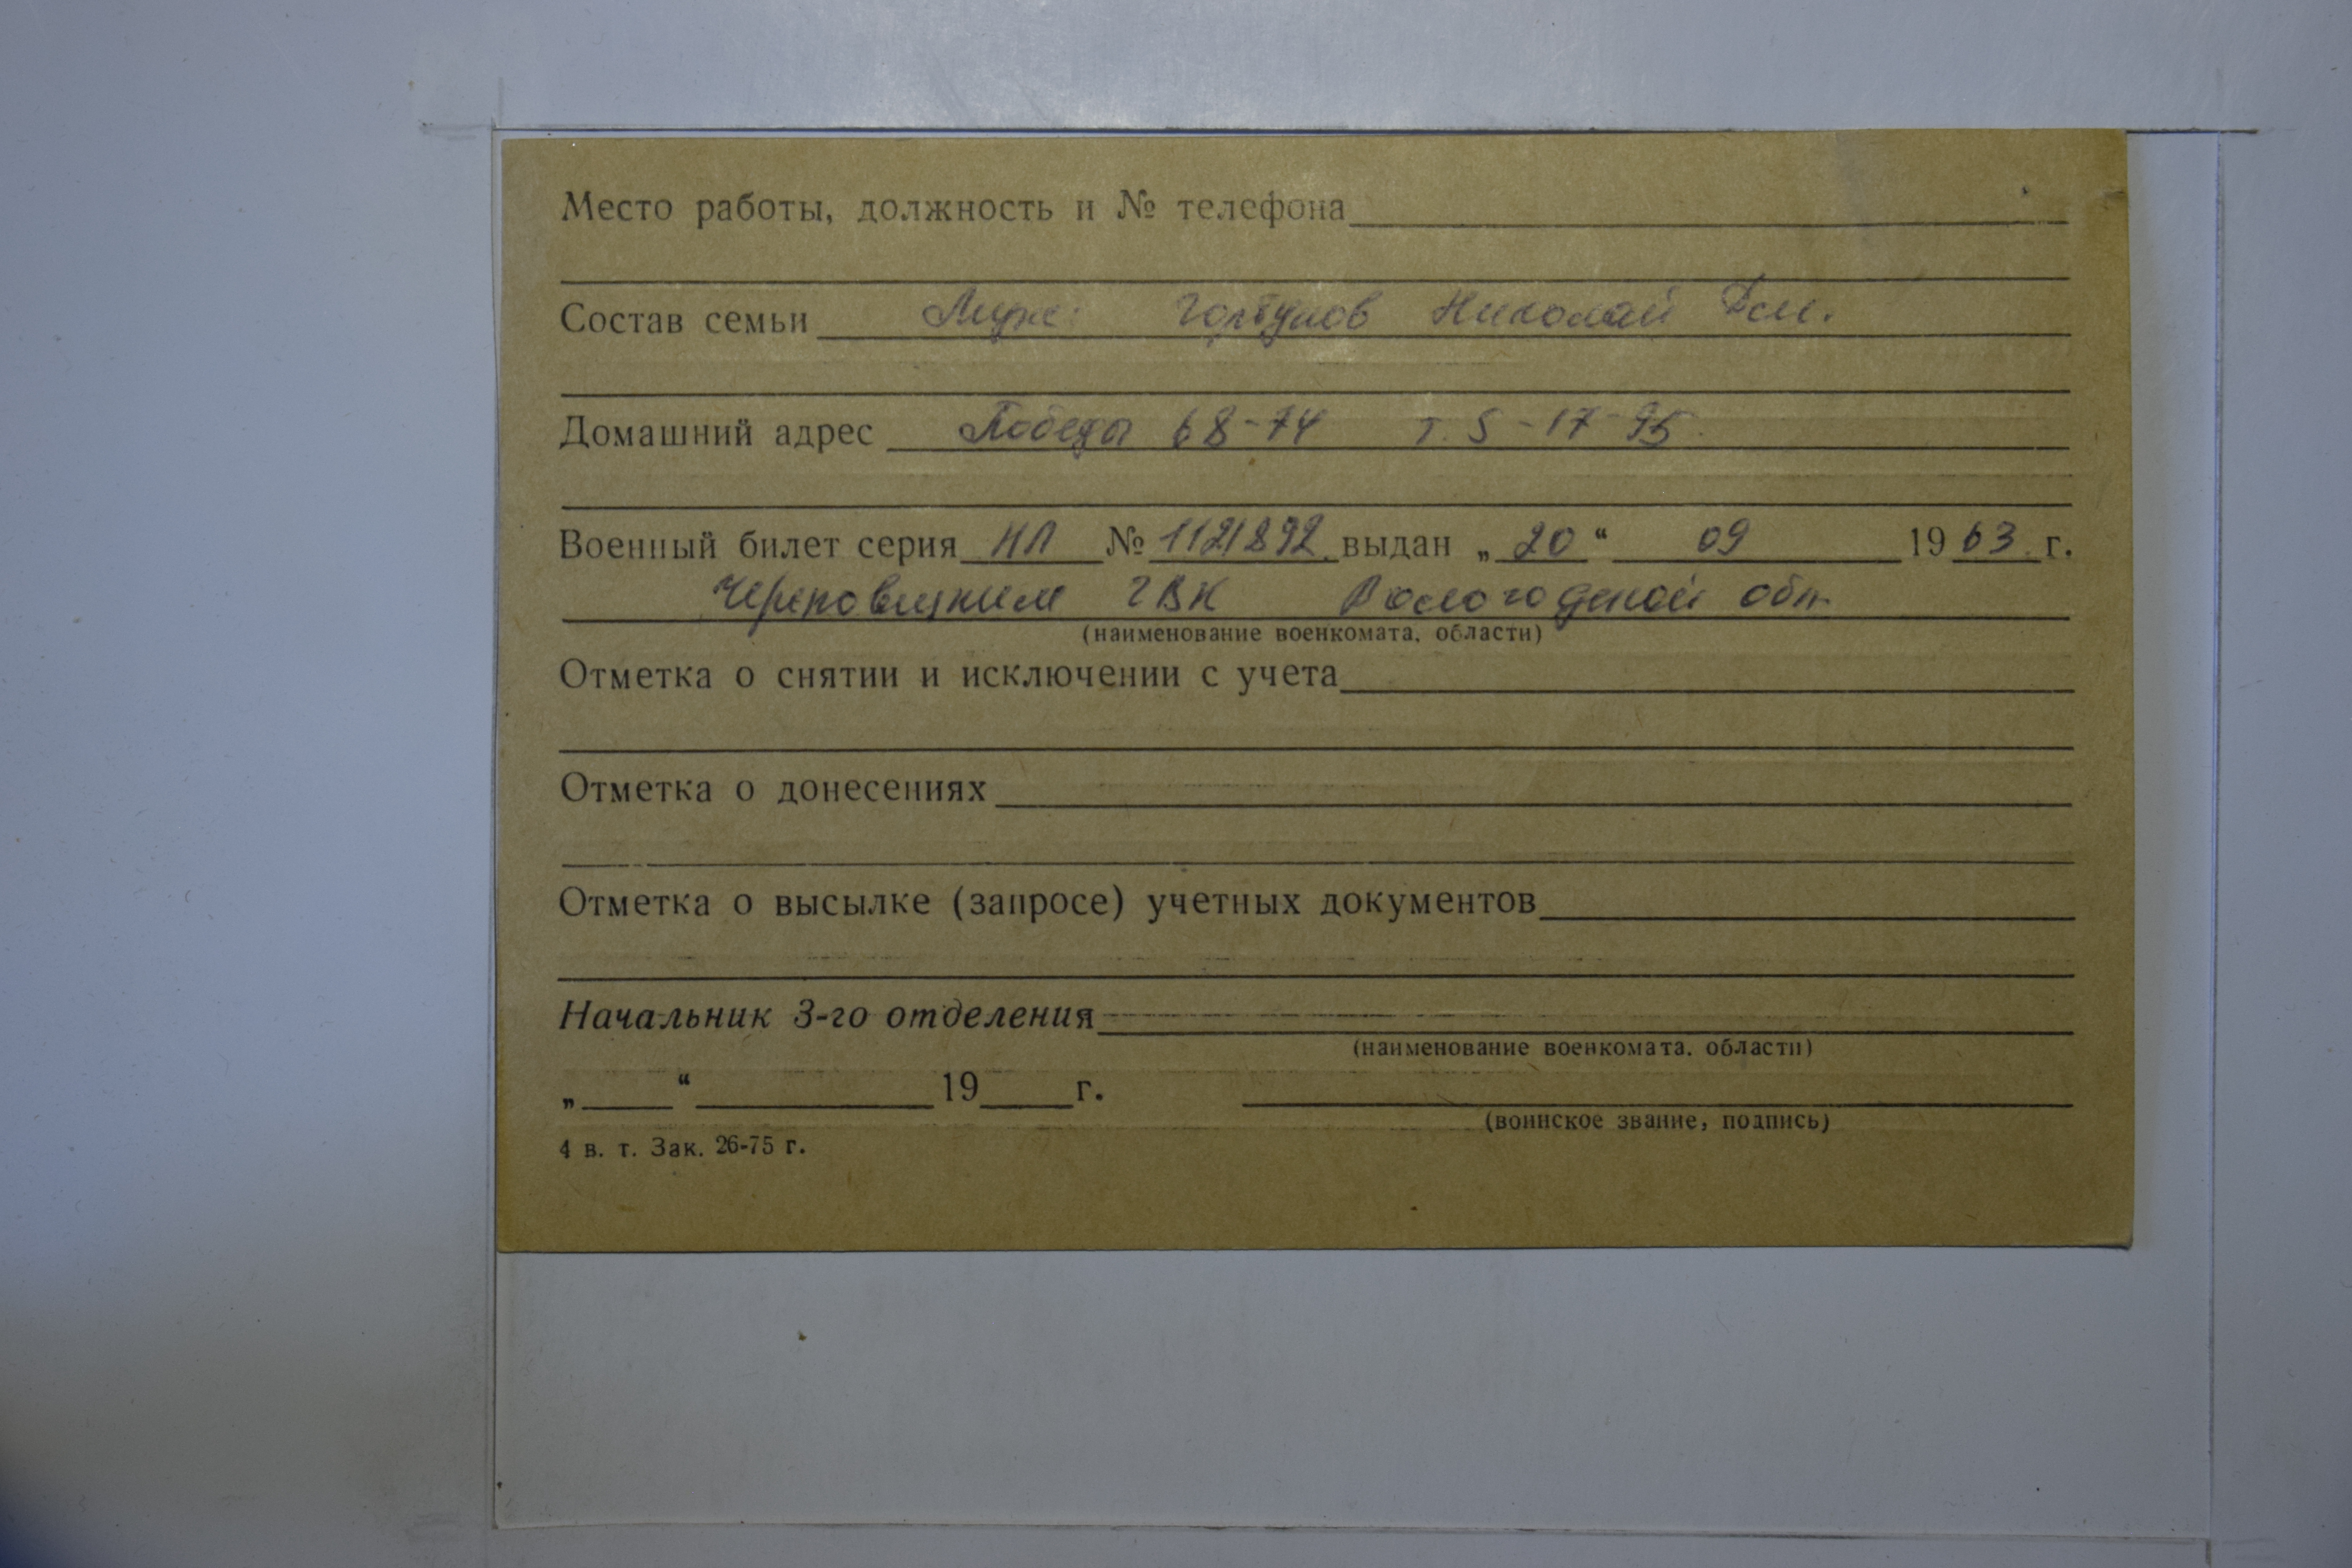 Место работы, должность и № телефона
Состав семьи Муж: Горбунов Николай
Домашний адрес Победы 68-74 т. 5-17-95
Военный билет серия НЛ № 1121892 выдан „20“ 09 1963 г.
Череповецким ГВК Вологодской обл.
(наименование военкомата, области)
Отметка о снятии и исключении с учета
Отметка о донесениях
Отметка о высылке (запросе) учетных документов
Начальник 3-го отделения
(наименование военкомата, области)
„ “ 19 г.
(воинское звание, подпись)
4 в. т. Зак. 26-75 г.